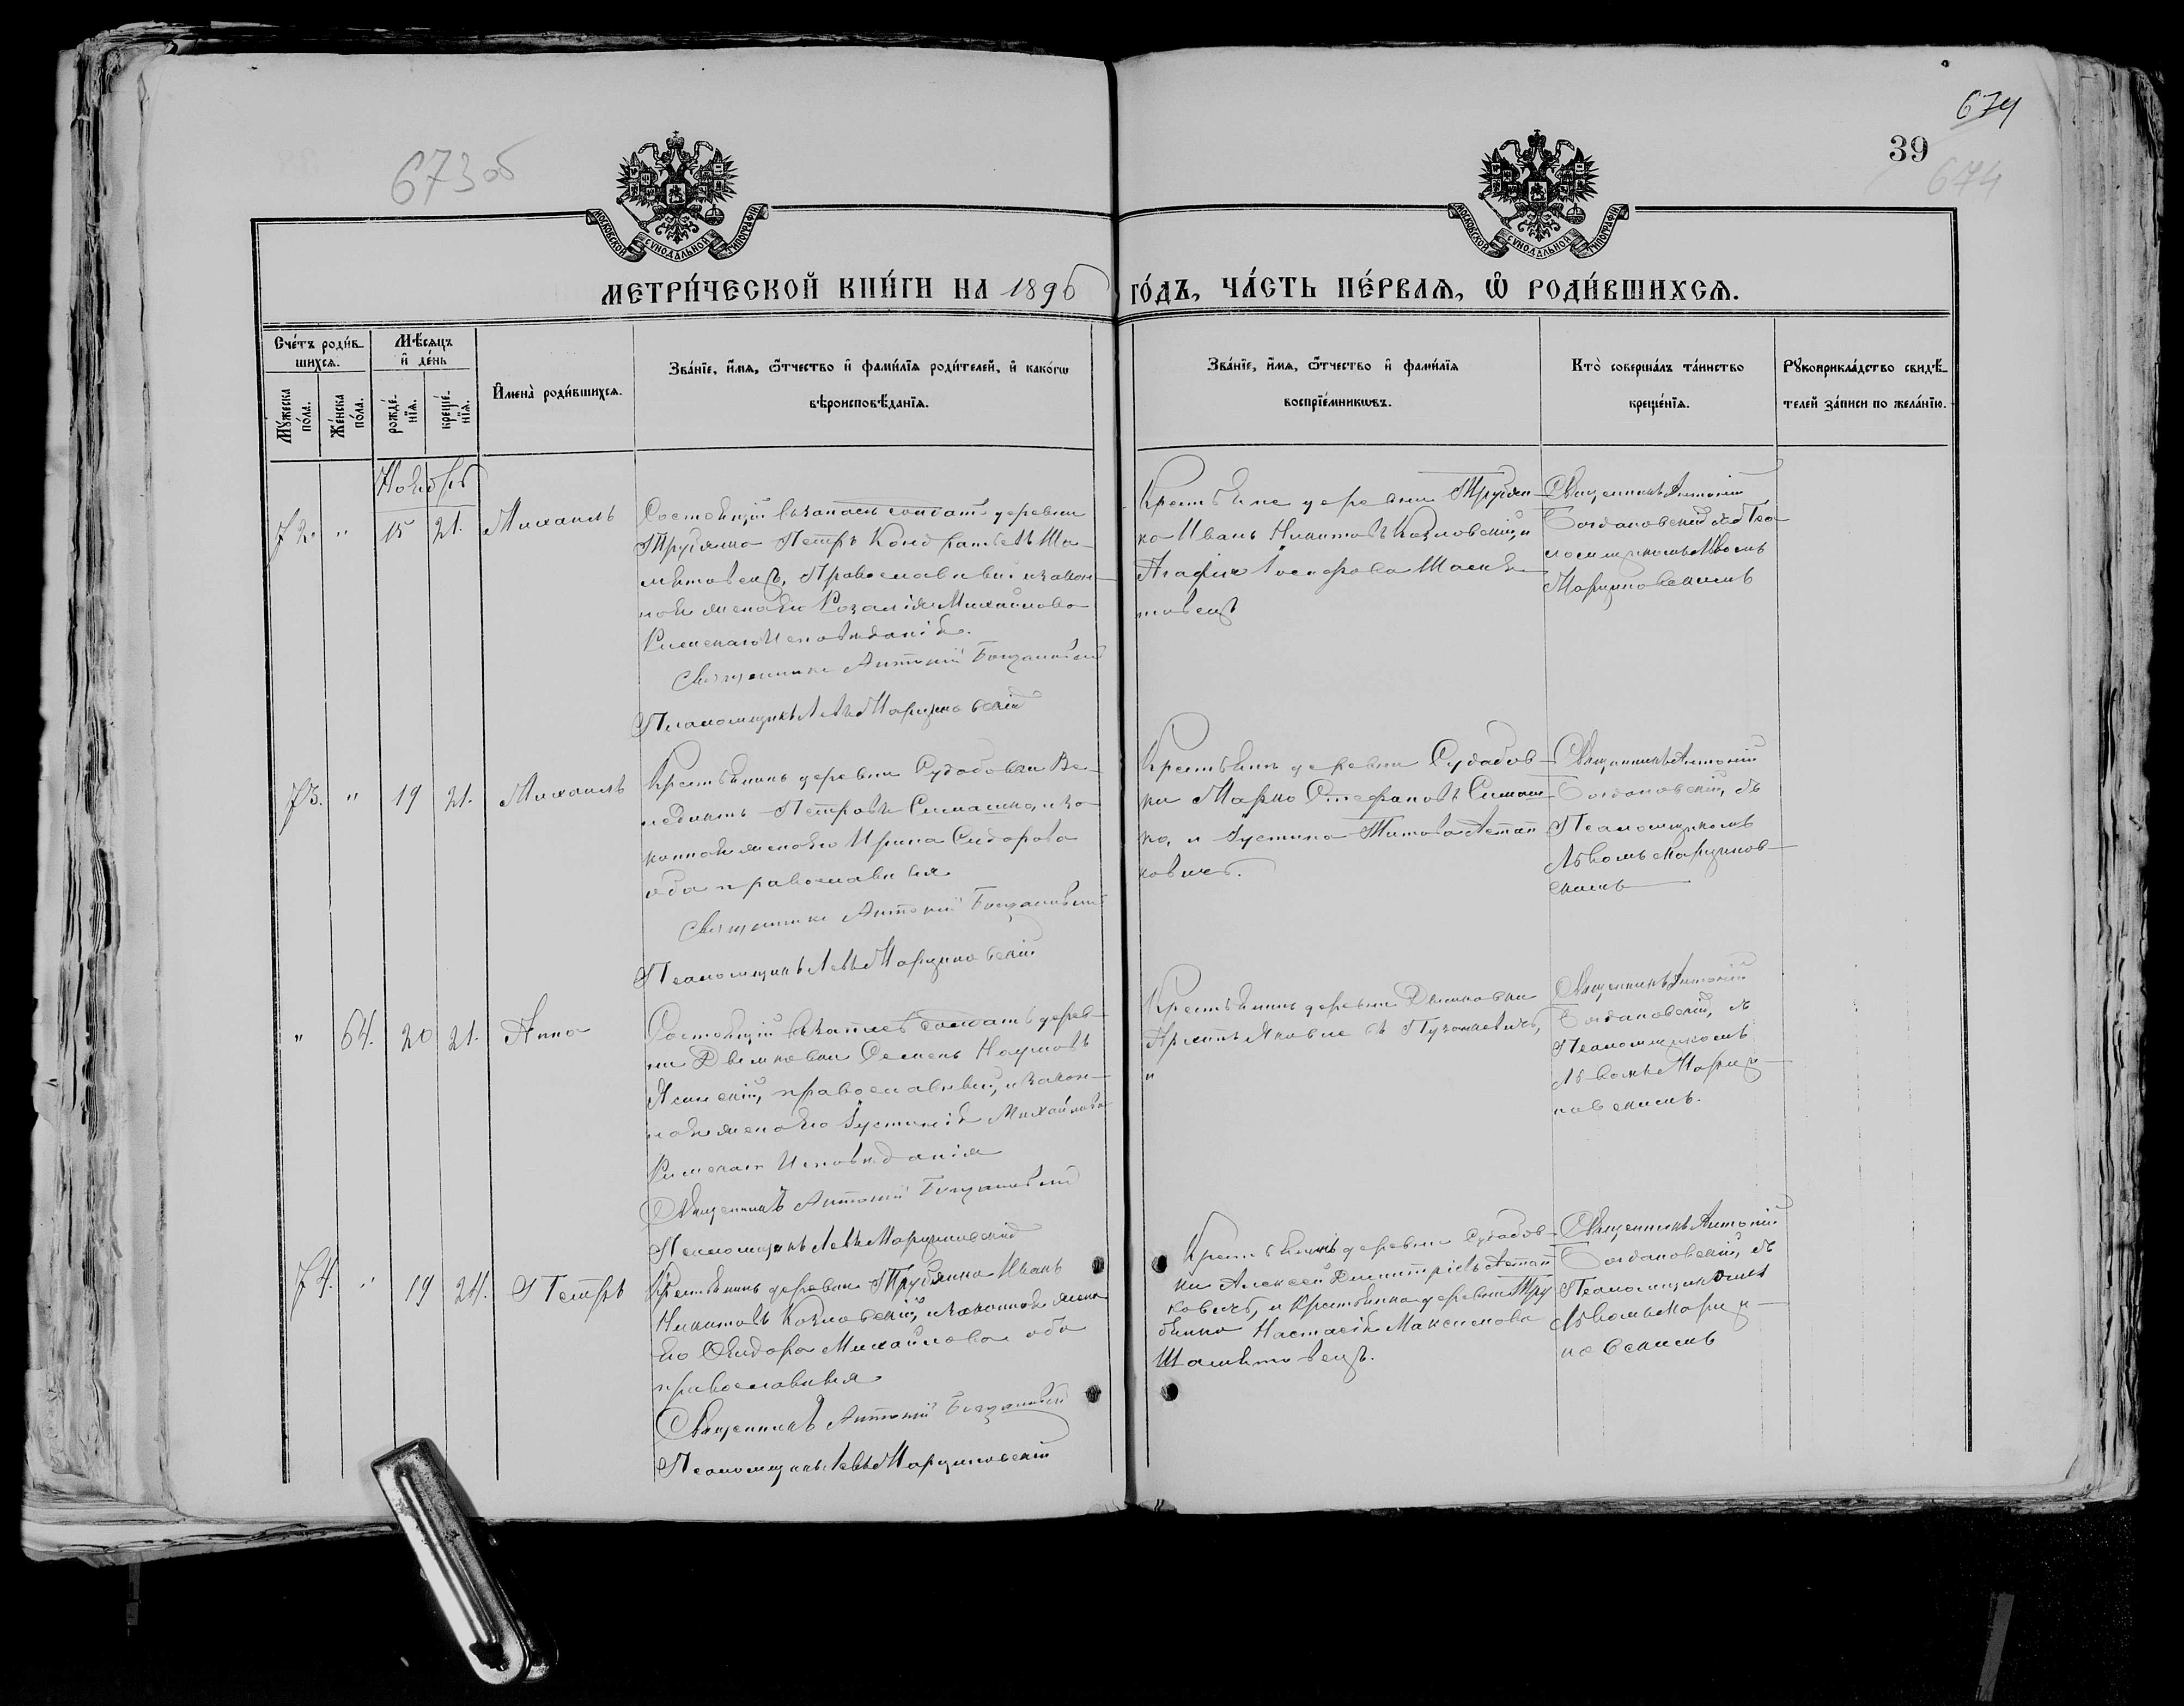 673 об
674
39
674
МОСКОВСКОЙ СѴНОДАЛЬНОЙ ТИПОГРАФІИ
МОСКОВСКОЙ СѴНОДАЛЬНОЙ ТИПОГРАФІИ
МЕТРИ́ЧЕСКОЙ КНИ́ГИ НА 1896
ГО́ДЪ, ЧА́СТЬ ПЕ́РВАЯ, Ѿ РОДИ́ВШИХСЯ.
Сче́тъ роди́в-
шихся.
Мѣсяцъ
и де́нь
Му́жеска по́ла.
Же́нска по́ла.
рожде́-
нія.
креще́-
нія.
Имена̀ роди́вшихся.
Зва́ніе, и́мя, ѻ҆́тчество и фами́лія роди́телей, и како́гѡ
вѣроисповѣ́данія.
Зва́ніе, и́мя, ѻ҆́тчество и фами́лія
воспріе́мникѡвъ.
Кто̀ соверша́лъ та́инство
креще́нія.
Рукоприкла́дство свидѣ́-
телей за́писи по жела́нію.
Ноябрь
72. " 15 21. Михаилъ
Состоящій въ запасѣ солдатъ деревни
Трубянко Петръ Кондратьевъ Ша-
метовецъ, Православный и закон-
ноя жена его Розалія Михайлова
Римскаго Исповѣданія.
Священникъ Антоній Богдановскій
Псаломщикъ Левъ Марциновскій
Крестьяне деревни Трубян-
ко Иванъ Никитовъ Козловскій, и
Агафія Іосифова Шаме-
товецъ
Священникъ Антоній
Богдановскій съ Пса-
ломщикомъ Львомъ
Марциновскимъ
73. " 19 21. Михаилъ
Крестьянинъ деревни Судабовки Ве-
недиктъ Петровъ Симашко, и за-
конная жена его Ирина Сидорова
оба православныя
Священникъ Антоній Богдановскій
Псаломщикъ Левъ Марциновскій
Крестьяне деревни Судабов-
ки Марко Стефановъ Симаш-
ко, и Густина Титова Астап-
ковичъ.
Священникъ Антоній
Богдановскій, съ
Псаломщикомъ
Львомъ Марцинов-
скимъ
" 64. 20 21. Анна
Состоящій въ запасѣ солдатъ дерев-
ни Семенъ Наумовъ
Ясинскій, православный, и закон-
ная жена его Густинія Михайлова
Римскаго Исповѣданія
Священникъ Антоній Богдановскій
Псаломщикъ Левъ Марциновскій
Крестьянинъ деревни
Яковлевъ
"
Священникъ Антоній
Богдановскій, съ
Псаломщикомъ
Львомъ Марци-
новскимъ.
74. " 19 24. Петръ
Крестьянинъ деревни Трубянко Иванъ
Никитовъ Козловскій, и законная жена
его Ѳеодора Михайлова оба
православныя
Священникъ Антоній Богдановскій
Псаломщикъ Левъ Марциновскій
Крестьянинъ деревни Судабов-
ки Алексей Димитріевъ Астап-
ковичъ, и Крестьянка деревни Тру-
бянко Настасія Максимова
Шаметовецъ.
Священникъ Антоній
Богдановскій, съ
Псаломщикомъ
Львомъ Марци-
новскимъ